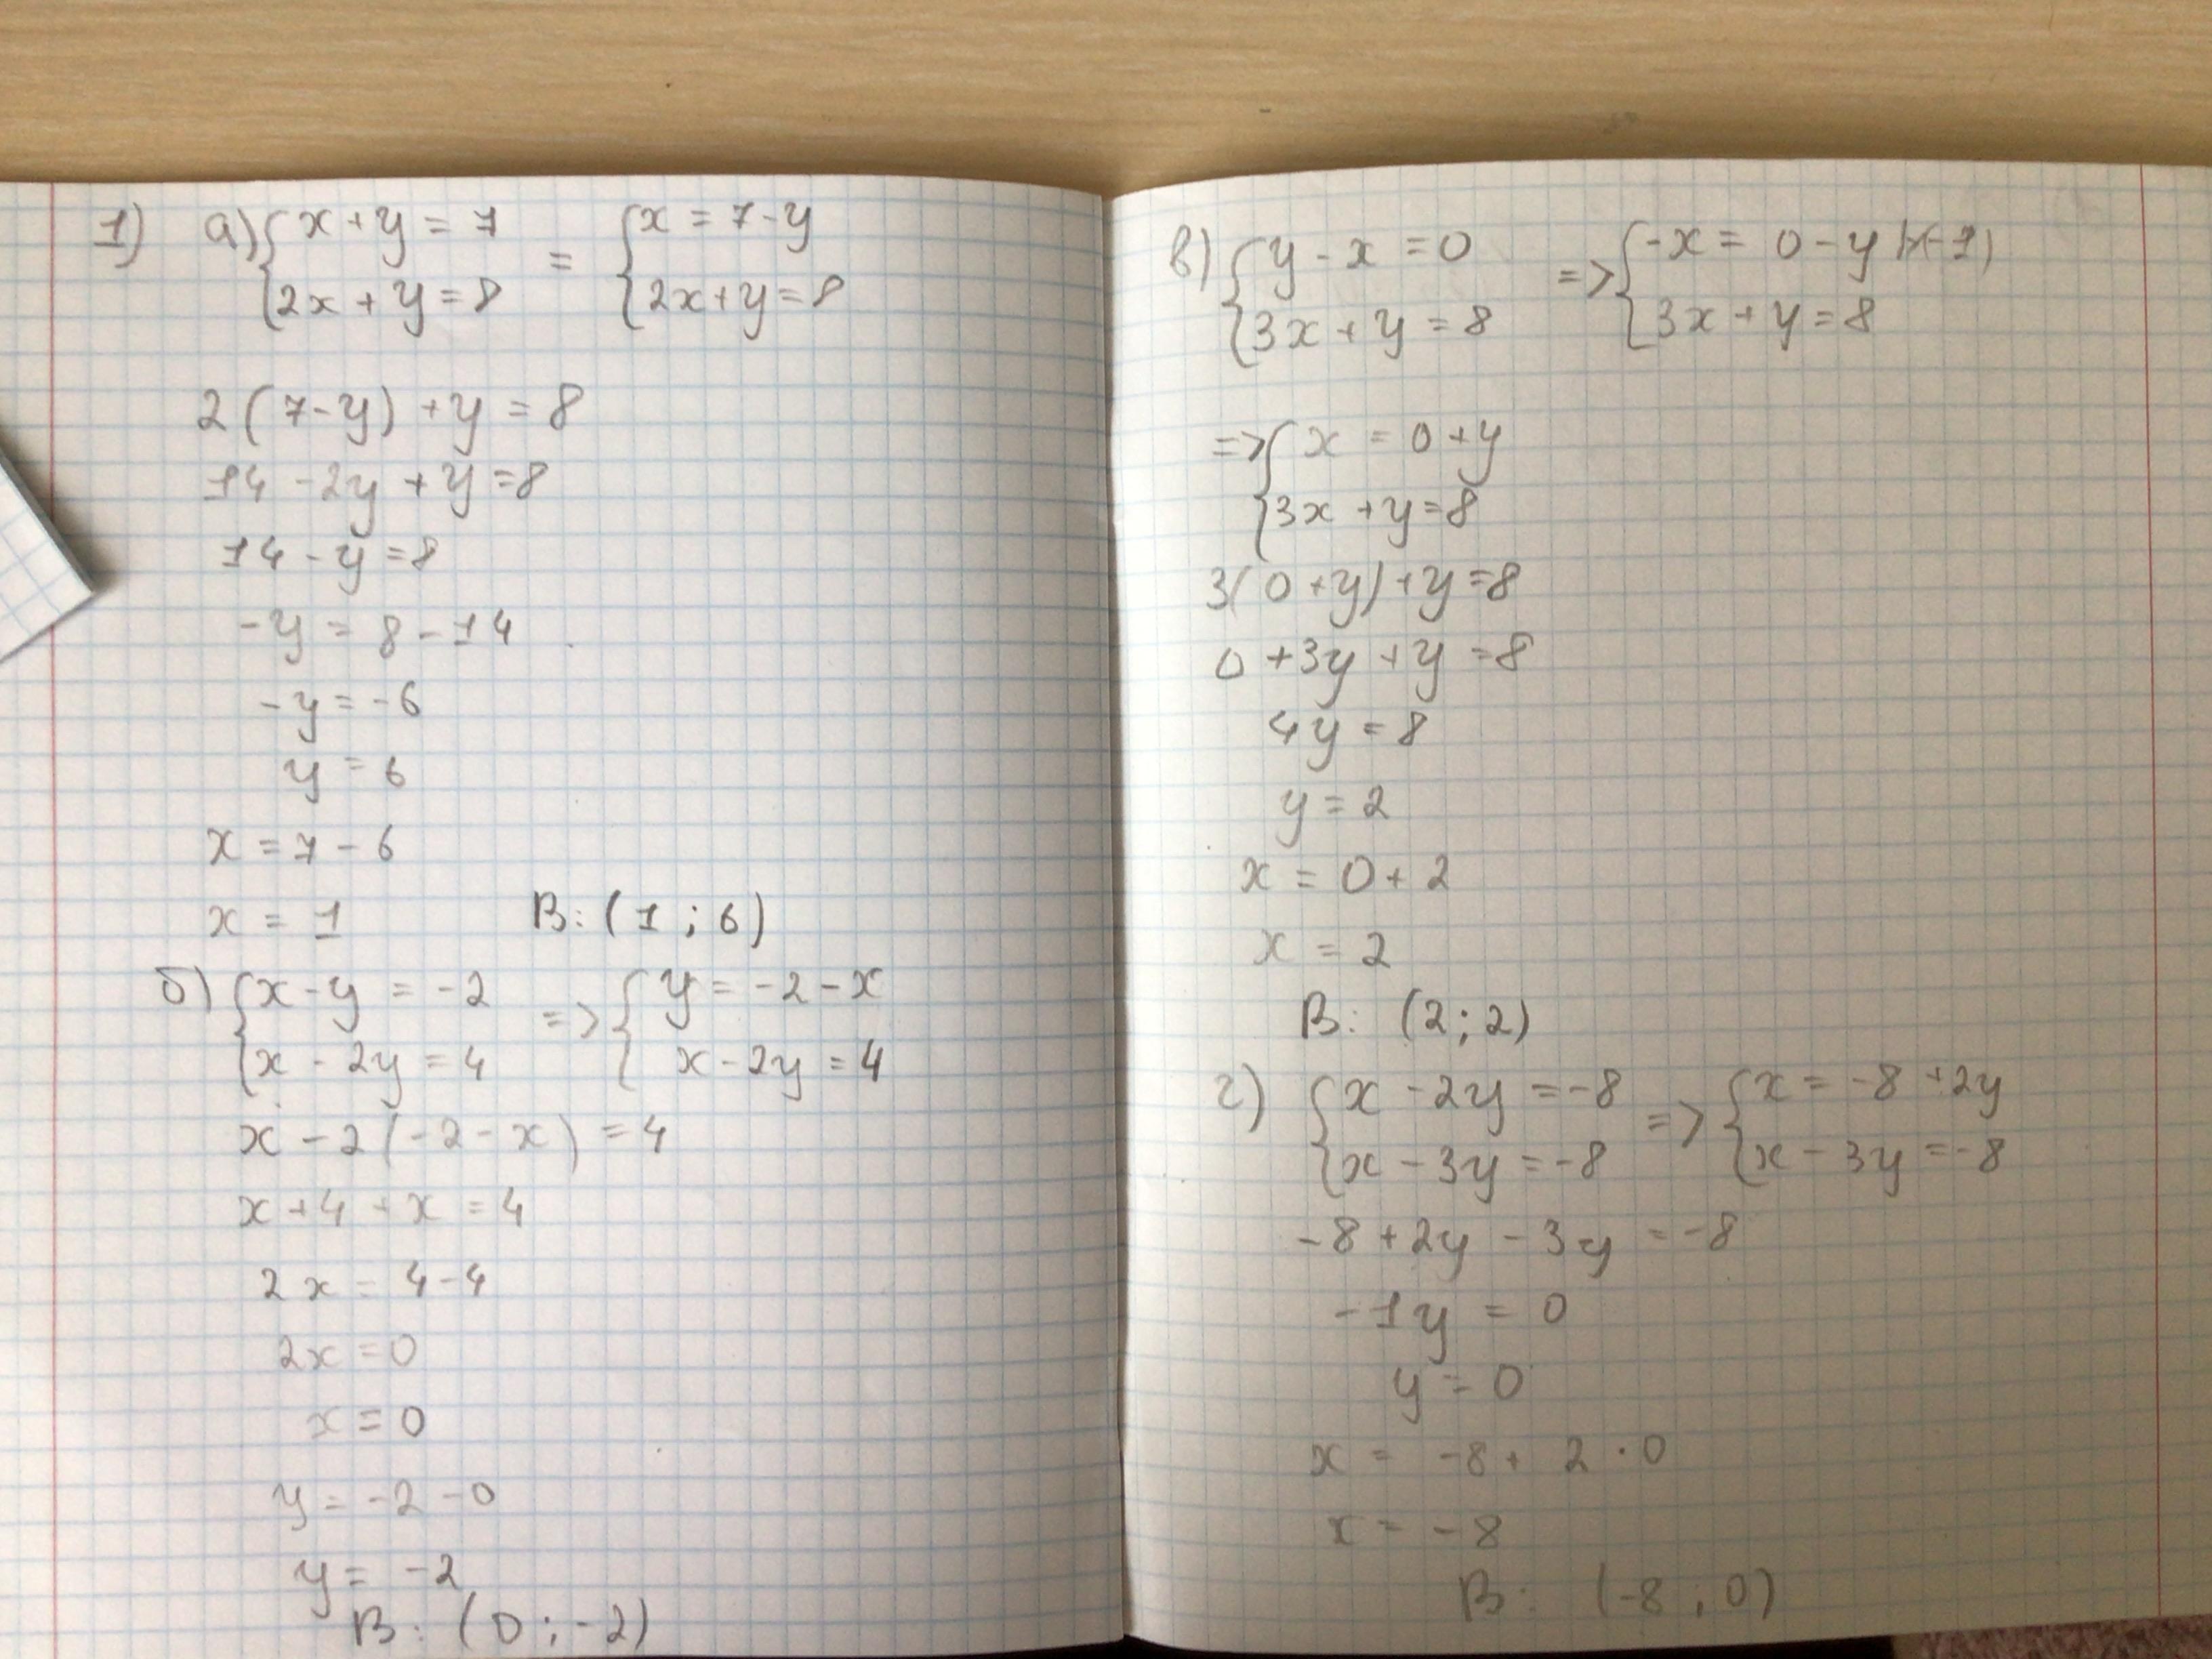 1) а) { x + y = 7 = { x = 7 - y
{ 2x + y = 8 { 2x + y = 8
2 ( 7 - y ) + y = 8
14 - 2y + y = 8
14 - y = 8
- y = 8 - 14
- y = - 6
y = 6
x = 7 - 6
x = 1 В: ( 1 ; 6 )
б) { x - y = - 2 => { y = - 2 - x
{ x - 2y = 4 { x - 2y = 4
x - 2 ( - 2 - x ) = 4
x + 4 + x = 4
2x = 4 - 4
2x = 0
x = 0
y = - 2 - 0
y = - 2
В: ( 0 ; - 2 )
в) { y - x = 0 => { - x = 0 - y |×(-1)
{ 3x + y = 8 { 3x + y = 8
=> { x = 0 + y
{ 3x + y = 8
3( 0 + y ) + y = 8
0 + 3y + y = 8
4y = 8
y = 2
x = 0 + 2
x = 2
В: ( 2 ; 2 )
г) { x - 2y = - 8 => { x = - 8 + 2y
{ x - 3y = - 8 { x - 3y = - 8
- 8 + 2y - 3y = - 8
- 1y = 0
y = 0
x = - 8 + 2 · 0
x = - 8
В: ( - 8 ; 0 )